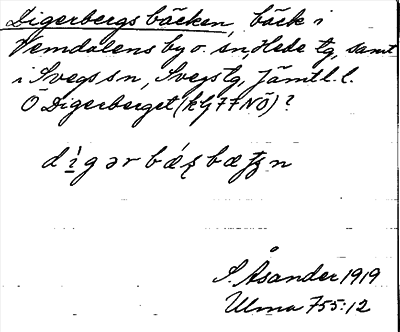 Digerbergsbäcken, bäck i
Vemdalens by o. sn, Hede tg, samt
i Svegs sn, Svegs tg, Jämtl. l.
Ö Digerberget (kG77NÖ)?
S. Åsander 1919
Ulma 755:12